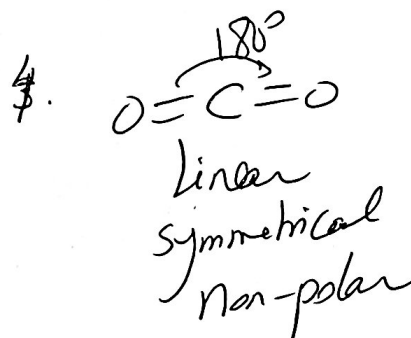 180°
4. O=C=O
Linear
symmetrical
non-polar